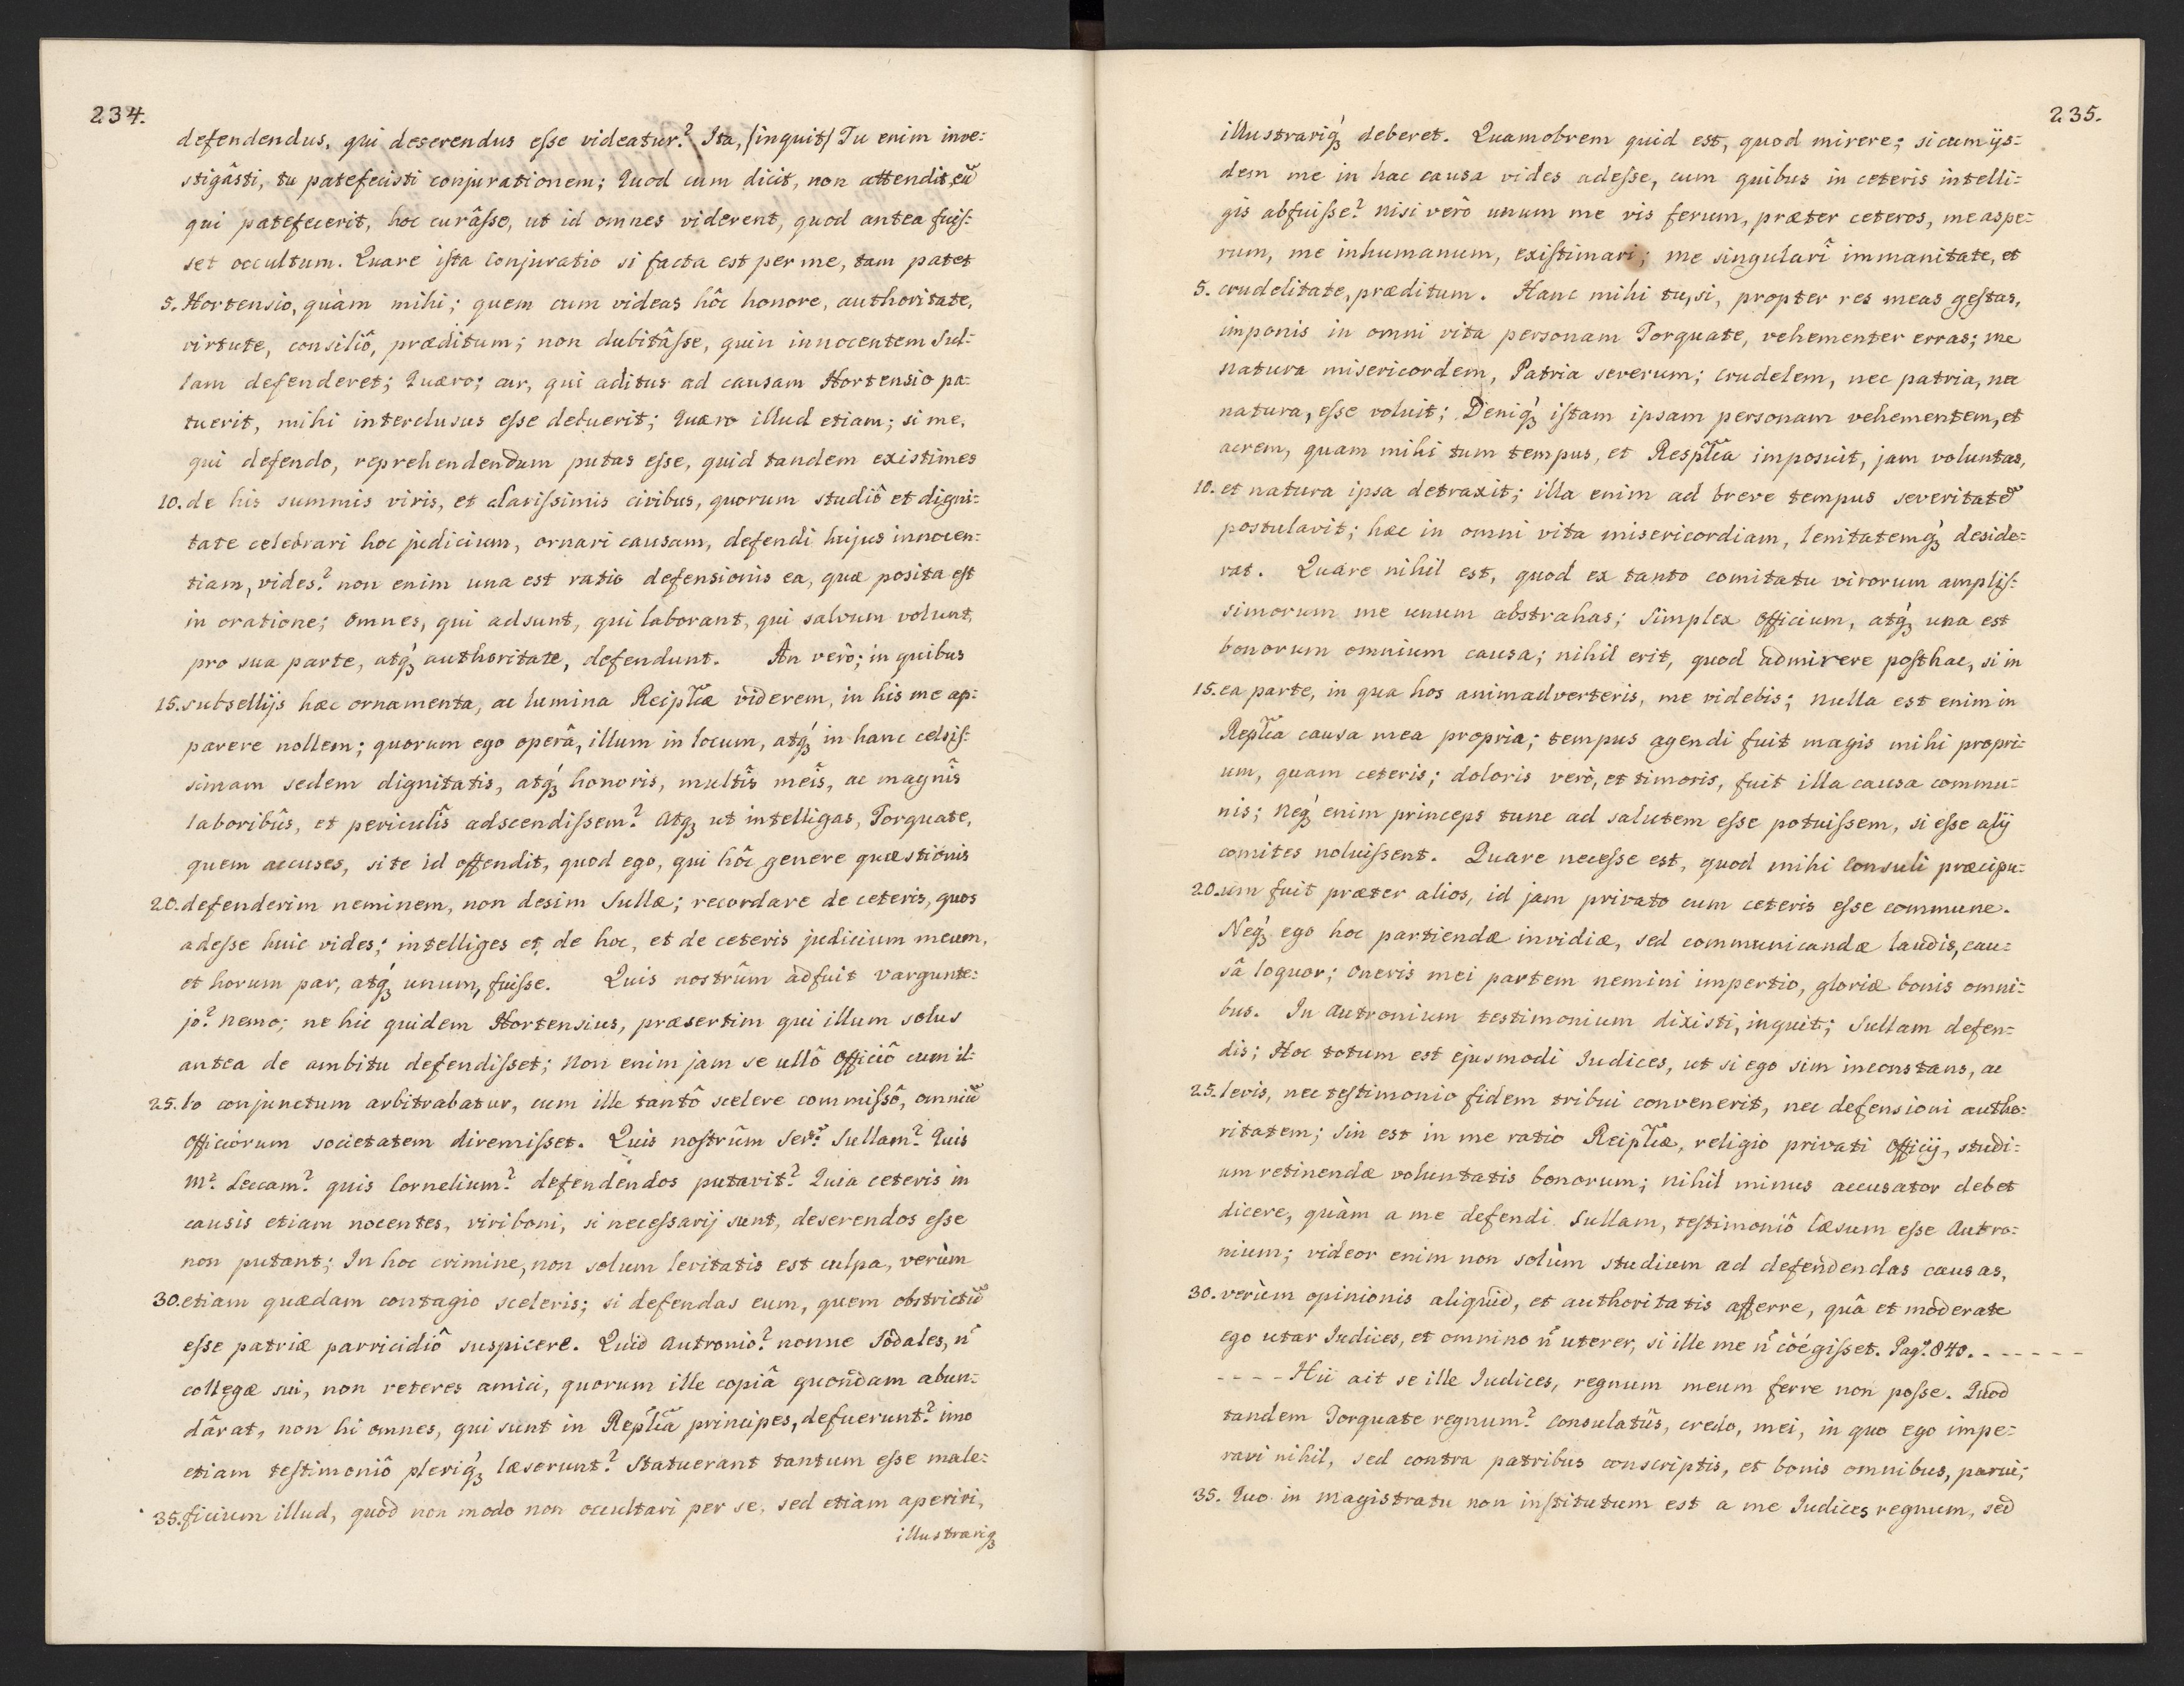 234.
defendendus, qui deserendus esse videatur? Ita, /inquit/ Tu enim inve:
stigâsti, tu patefecisti conjurationem; Quod cum dicit, non attendit, eũ
qui patefecerit, hoc curâsse, ut id omnes viderent, quod antea fuis:
set occultum. Quare ista Conjuratio si facta est per me, tam patet
5. Hortensio, quàm mihi; quem cum videas hôc honore, authoritate,
virtute, consiliô, præditum; non dubitâsse, quin innocentem Sul:
lam defenderet; Quæro; cur, qui aditus ad causam Hortensio pa:
tuerit, mihi interclusus esse debuerit; Quæro illud etiam; si me,
qui defendo, reprehendendum putas esse, quid tandem existimes
10. de his summis viris, et clarissimis civibus, quorum studiô et digni:
tate celebrari hoc judicium, ornari causam, defendi hujus innocen:
tiam, vides? non enim una est ratio defensionis ea, quæ posita est
in oratione; omnes, qui adsunt, qui laborant, qui salvum volunt,
pro sua parte, atq́ꝫ authoritate, defendunt. An verò; in quibus
15. subsellijs hæc ornamenta, ac lumina Reipl̃cæ viderem, in his me ap:
parere nollem; quorum ego operâ, illum in locum, atq́ꝫ in hanc celsis:
simam sedem dignitatis, atq́ꝫ honoris, multîs meîs, ac magnîs
laboribûs, et periculîs adscendissem? Atqꝫ ut intelligas, Torquate,
quem accuses, si te id offendit, quod ego, qui hôc genere quæstionis
20. defenderim neminem, non desim Sullæ; recordare de ceteris, quos
adesse huic vides; intelliges et de hoc, et de ceteris judicium meum,
et horum par, atq́ꝫ unum, fuisse. Quis nostrûm adfuit Vargunte:
jo? nemo; ne hic quidem Hortensius, præsertim qui illum solus
antea de ambitu defendisset; Non enim jam se ullô Officiô cum il:
25. lo conjunctum arbitrabatur, cum ille tantô scelere commissô, omniũ
Officiorum societatem diremisset. Quis nostrûm Ser:? Sullam? Quis
M? Leccam? quis Cornelium? defendendos putavit? Quia ceteris in
causis etiam nocentes, viri boni, si necessarij sunt, deserendos esse
non putant; In hoc crimine, non solum levitatis est culpa, verùm
30. etiam quædam contagio sceleris; si defendas eum, quem obstrictũ
esse patriæ parricidiô suspicere. Quid Autronio? nonne Sodales, ñ
collegæ sui, non veteres amici, quorum ille copiâ quondam abun:
dârat, non hi omnes, qui sunt in Repl̃ca principes, defuerunt? imo
etiam testimoniô pleriq́ꝫ læserunt? Statuerant tantum esse male:
35. ficium illud, quod non modo non occultari per se, sed etiam aperiri,
illustrariqꝫ
235.
illustrariq́ꝫ deberet. Quamobrem quid est, quod mirere; si cum ijs:
dem me in hac causa vides adesse, cum quibus in ceteris intelli:
gis abfuisse? nisi verò unum me vis ferum, præter ceteros, me aspe:
rum, me inhumanum, existimari; me singulari immanitate, et
5. crudelitate, præditum. Hanc mihi tu, si, propter res meas gestas,
imponis in omni vita personam Torquate, vehementer erras; me
natura misericordem, Patria severum; crudelem, nec patria, nec
natura, esse voluit; Deniq́ꝫ istam ipsam personam vehementem, et
acrem, quam mihi tum tempus, et Respl̃ca imposuit, jam voluntas,
10. et natura ipsa detraxit; illa enim ad breve tempus severitatẽ
postulavit; hæc in omni vita misericordiam, lenitatemq́ꝫ deside:
rat. Quare nihil est, quod ex tanto comitatu virorum amplis:
simorum me unum abstrahas; Simplex Officium, atq́ꝫ una est
bonorum omnium causa; nihil erit, quod admirere posthac, si in
15. ea parte, in qua hos animadverteris, me videbis; Nulla est enim in
Repl̃ca causa mea propria; tempus agendi fuit magis mihi propri:
um, quam ceteris; doloris verò, et timoris, fuit illa causa commu:
nis; Neq́ꝫ enim princeps tunc ad salutem esse potuissem, si esse alij
comites noluissent. Quare necesse est, quod mihi Consuli præcipu:
20. um fuit præter alios, id jam privato cum ceteris esse commune.
Neq́ꝫ ego hoc partiendæ invidiæ, sed communicandæ laudis, cau:
sâ loquor; Oneris mei partem nemini impertio, gloriæ bonis omni:
bus. In Autronium testimonium dixisti, inquit; Sullam defen:
dis; Hoc totum est ejusmodi Iudices, ut si ego sim inconstans, ac
25. levis, nec testimonio fidem tribui convenerit, nec defensioni autho:
ritatem; Sin est in me ratio Reipl̃cæ, religio privati Officij, studi:
um retinendæ voluntatis bonorum; nihil minus accusator debet
dicere, quàm a me defendi Sullam, testimoniô læsum esse Autro:
nium; videor enim non solùm studium ad defendendas causas,
30. verùm opinionis aliquid, et authoritatis afferre, quâ et moderate
ego utar Iudices, et omnino ñ uterer, si ille me ñ cöégisset. Pag: 840. - - - - - -
- - - - Hîc ait se ille Iudices, regnum meum ferre non posse. Quod
tandem Torquate regnum? Consulatûs, credo, mei, in quo ego impe:
ravi nihil, sed contra patribus conscriptis, et bonis omnibus, parui;
35. Quo in Magistratu non institutum est a me Iudices regnum, sed